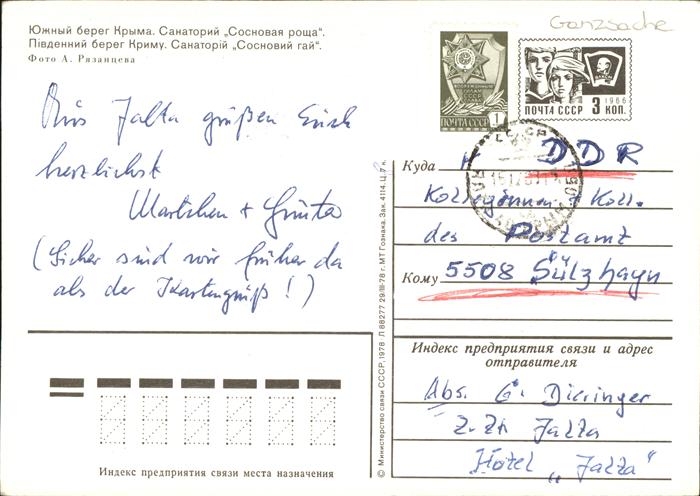 Южный берег Крыма. Санаторий „Сосновая роща“.
Південний берег Криму. Санаторій „Сосновий гай“.
Фото А. Рязанцева
Ganzsache
ВООРУЖЕННЫЕ СИЛЫ СССР
ПОЧТА СССР 1
ВЛКСМ
1966
ПОЧТА СССР 3 КОП.
Aus Jalta grüßen Euch
herzlichst
Martchen + Günter
(Sicher sind wir früher da
als der Kartengruß!)
Куда DDR
Kolleginnen + Koll.
des Postamt
Кому 5508 Sülzhayn
Индекс предприятия связи и адрес
отправителя
Abs. G. Dieringer
z. Zt. Jalta
Hotel „Jalta“
Индекс предприятия связи места назначения
© Министерство связи СССР, 1978 Л 88277 29/III-78 г. МТ Гознака. Зак. 4114. Ц. 7 к.